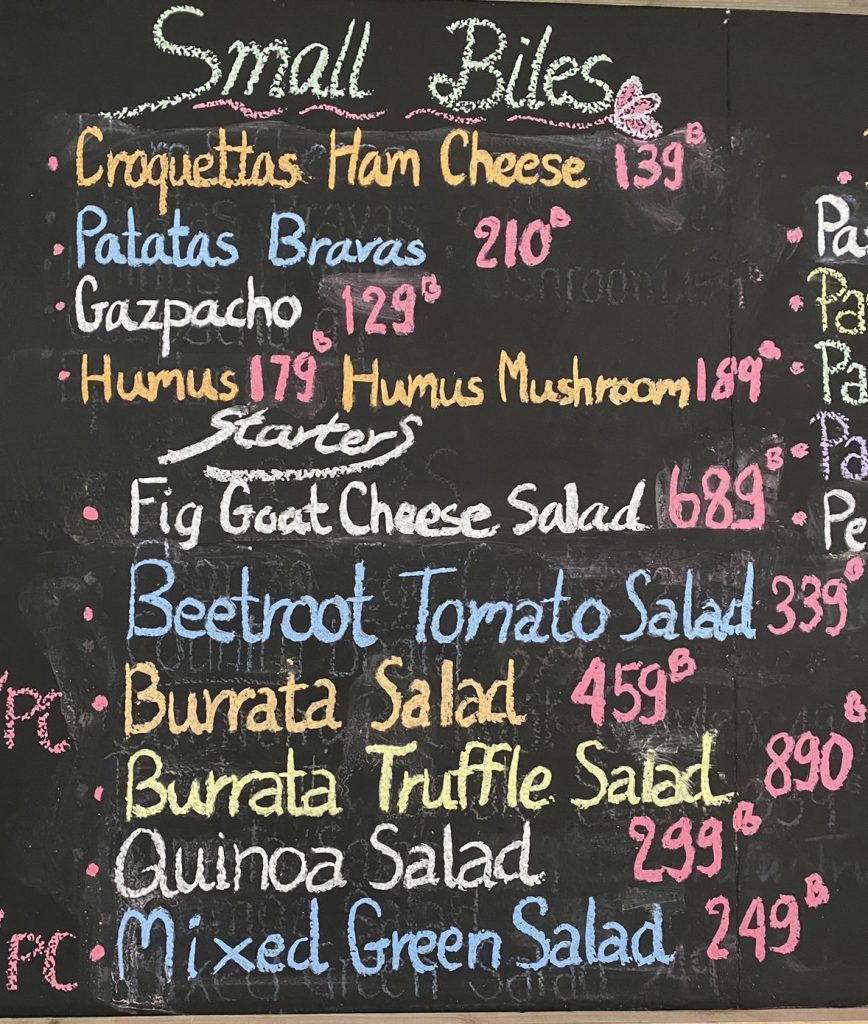 Small Biles
• Croquettas Ham Cheese 139 B
• Patatas Bravas 210 B
• Gazpacho 129 B
• Humus 179 B Humus Mushroom 189 B
Starters
• Fig Goat Cheese Salad 689 B
• Beetroot Tomato Salad 339 B
• Burrata Salad 459 B
• Burrata Truffle Salad 890 B
• Quinoa Salad 299 B
• Mixed Green Salad 249 B
/PC
/PC
• Pa
• Pa
• Pa
• Pa
• Pe